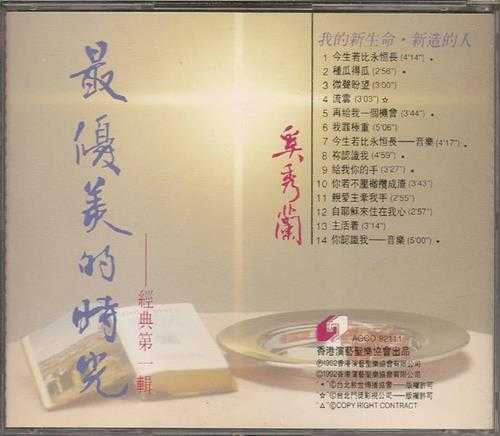 最優美的時光
——經典第一輯
奚秀蘭
我的新生命・新造的人
1 今生若比永恒長 (4'14") •
2 種瓜得瓜 (2'56") •
3 微聲盼望 (3'00")
4 流雲 (3'03") ☆
5 再給我一個機會 (3'44") •
6 我罪極重 (5'06")
7 今生若比永恒長——音樂 (4'17") •
8 祢認識我 (4'59") •
9 給我你的手 (3'27") •
10 你若不壓橄欖成渣 (3'43")
11 親愛主牽我手 (2'55")
12 自耶穌來住在我心 (2'57")
13 主活着 (3'14")
14 你認識我——音樂 (5'00") •
AGCD 92111
香港演藝聖樂協會出品
Ⓟ1992香港演藝聖樂協會有限公司
©1992香港演藝聖樂協會有限公司
• ©台北救世傳播協會——版權許可
☆ ©台北門徒影視公司——版權許可
△ ©COPY RIGHT CONTRACT